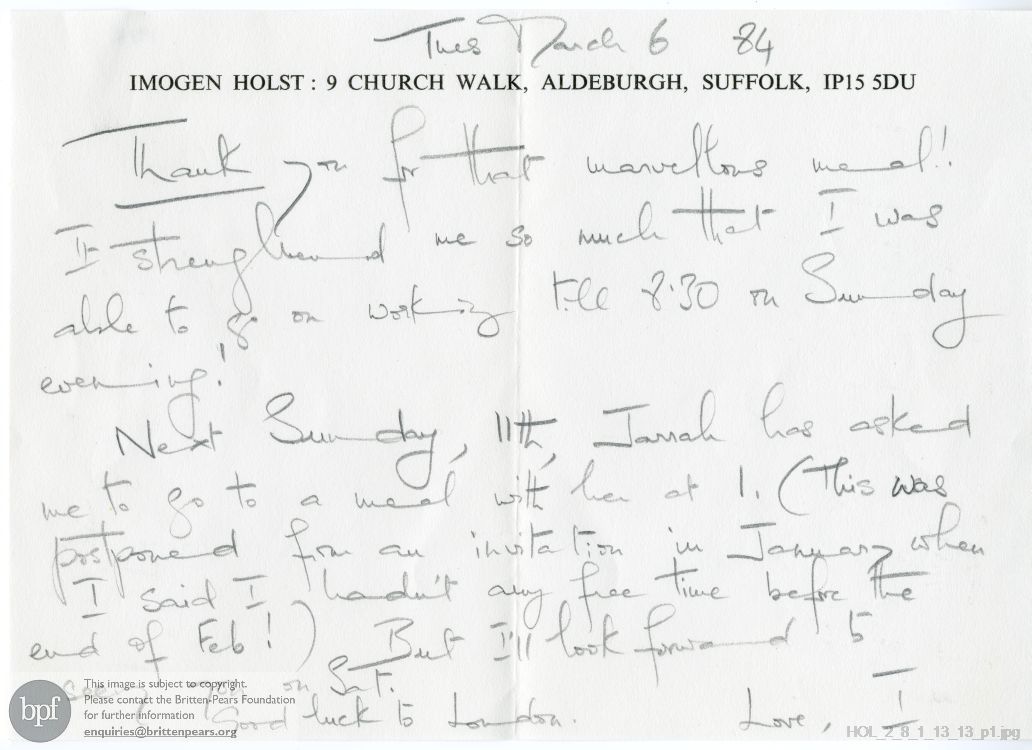 Tues March 6 84
IMOGEN HOLST : 9 CHURCH WALK, ALDEBURGH, SUFFOLK, IP15 5DU
Thank you for that marvellous meal!!
It strengthened me so much that I was
able to go on working till 8.30 on Sunday
evening!
Next Sunday, 11th, Jarrah has asked
me to go to a meal with her at 1. (This was
postponed from an invitation in January when
I said I hadn't any free time before the
end of Feb!) But I'll look forward to
seeing you on Sat.
Good luck to London.
Love, I
bpf
This image is subject to copyright.
Please contact the Britten-Pears Foundation
for further information
enquiries@brittenpears.org
HOL_2_8_1_13_13_p1.jpg